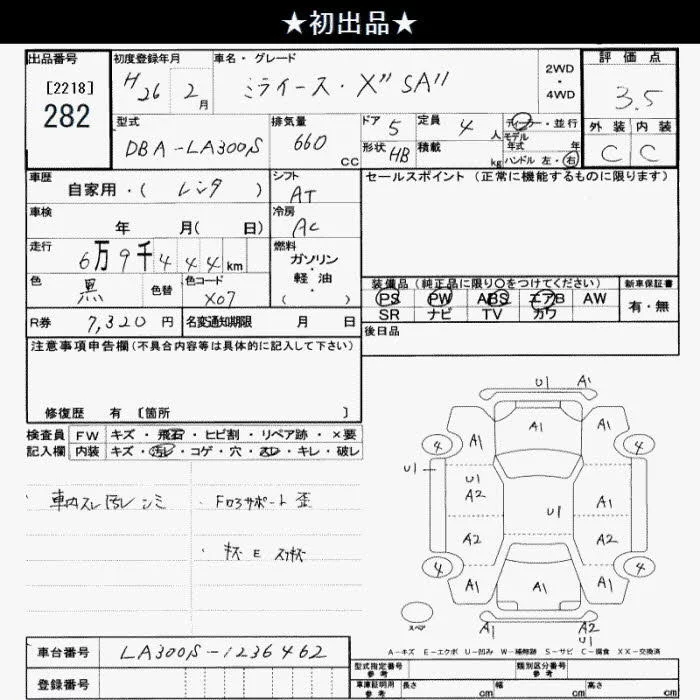 ★初出品★
出品番号
[2218]
282
初度登録年月
H26 2月
車名・グレード
ミライース・X" SA"
2WD
・
4WD
評価点
3.5
外装 内装
C C
型式
DBA-LA300S
排気量
660 CC
ドア 5
定員 4人
形状 HB
積載 kg
ディーラー・並行
モデル
年式 年
ハンドル 左・右
車歴
自家用・( レンタ )
シフト
AT
セールスポイント (正常に機能するものに限ります)
車検
年 月( 日)
冷房
AC
走行
6万9千444km
燃料
ガソリン
・
軽油
( )
色
黒
色替
色コード
X07
装備品 (純正品に限り○をつけてください)
PS PW ABS エアB AW
SR ナビ TV カワ
新車保証書
有・無
R券 7,320円
名変通知期限 月 日
後日品
注意事項申告欄 (不具合内容等は具体的に記入して下さい)
修復歴 有 〔箇所 〕
検査員 FW キズ・飛石・ヒビ割・リペア跡・×要
記入欄 内装 キズ・汚レ・コゲ・穴・スレ・キレ・破レ
車内スレ汚レシミ
・Fロアサポート 歪
・キズ E スリキズ
U1 A1
A1 A1 A1
4 4
U1
U1
A2
U1
A1
A2 A2
4 4
A1 A1 A1
スペア
A1 A2
U1
A-キズ E-エクボ U-凹み W-補修跡 S-サビ C-腐食 XX-交換済
車台番号 LA300S-1236462
登録番号
型式指定番号
参考
類別区分番号
参考
車庫証明用
参考
長さ cm
幅 cm
高さ cm